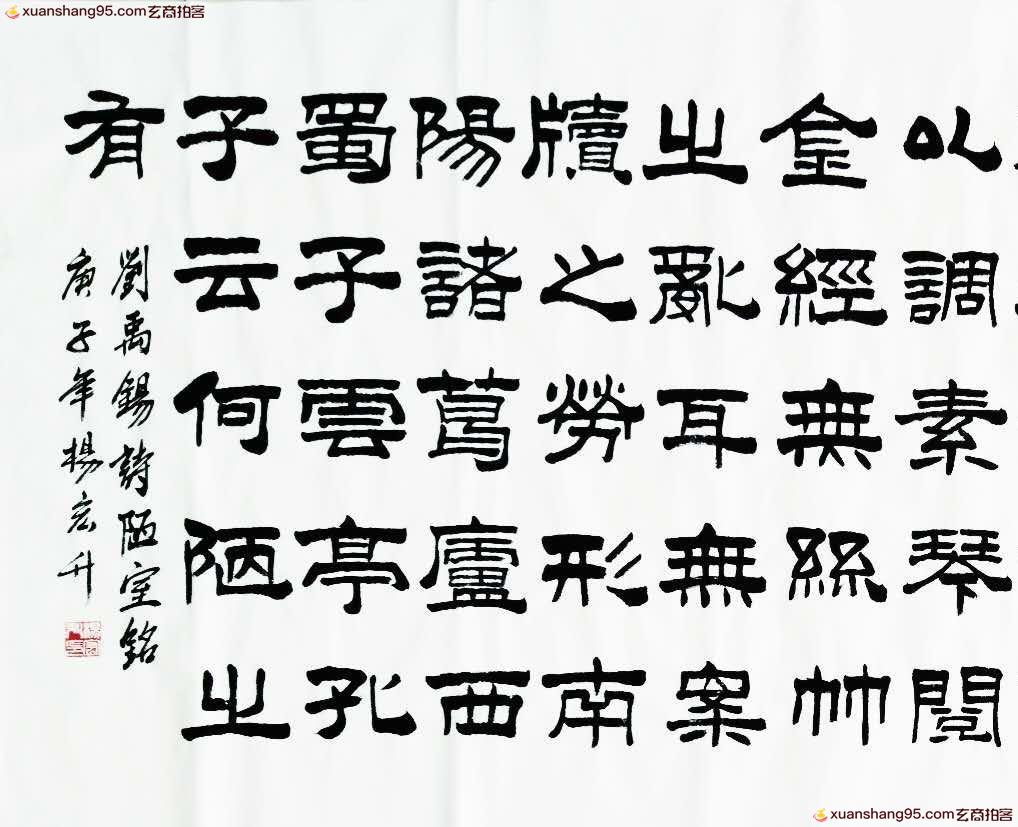 xuanshang95.com玄商拍客
以調素琴閱
金經無絲竹
之亂耳無案
牘之勞形南
陽諸葛廬西
蜀子雲亭孔
子云何陋之
有
劉禹錫詩陋室銘
庚子年楊宏升
xuanshang95.com玄商拍客